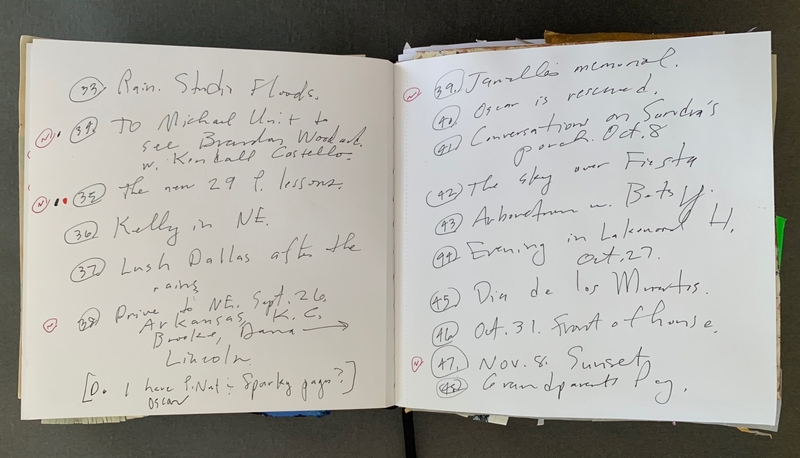 33. Rain. Studio Floods.
N 34. To Michael Unit to
see Brandon Woodard
w. Kendall Costello.
N 35. the new 29 P. lessons.
36. Kelly in NE.
37. Lush Dallas after the
rains
N 38. Drive to NE. Sept. 26.
Arkansas, K.C.
Brooke, Dana →
Lincoln
[Do I have P. Nat & Sparky pages?]
Oscar
N 39. memorial.
40. Oscar is rescued.
41. Conversations on Sandra's
porch. Oct. 8
42. The sky over Fiesta
43. Arboretum w. Betsy.
44. Evening in Lakewood H.
Oct. 27.
45. Dia de los Muertos.
46. Oct. 31. Front of house.
N 47. Nov. 8. Sunset
48. Grandparents Day.